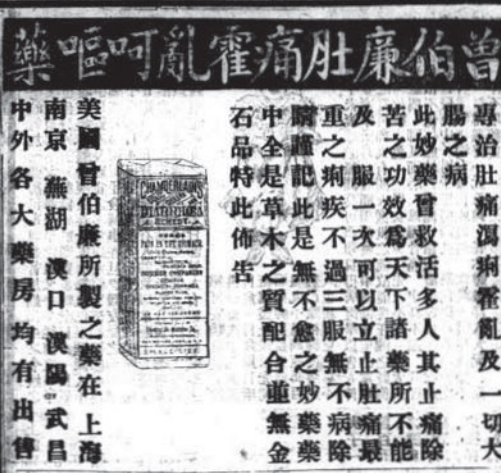 曾伯廉肚痛霍亂呵嘔藥
專治肚痛瀉痢霍亂及一切大
腸之病
此妙藥曾救活多人其止痛除
苦之功效爲天下諸藥所不能
及 服一次可以立止肚痛最
重之痢疾不過三服無不病除
謹記此是無不愈之妙藥藥
中全是草木之質配合並無金
石品特此佈告
CHAMBERLAIN'S
PAIN IN THE STOMACH
美國曾伯廉所製之藥在 上海
南京 蕪湖 漢口 漢陽 武昌
中外各大藥房均有出售